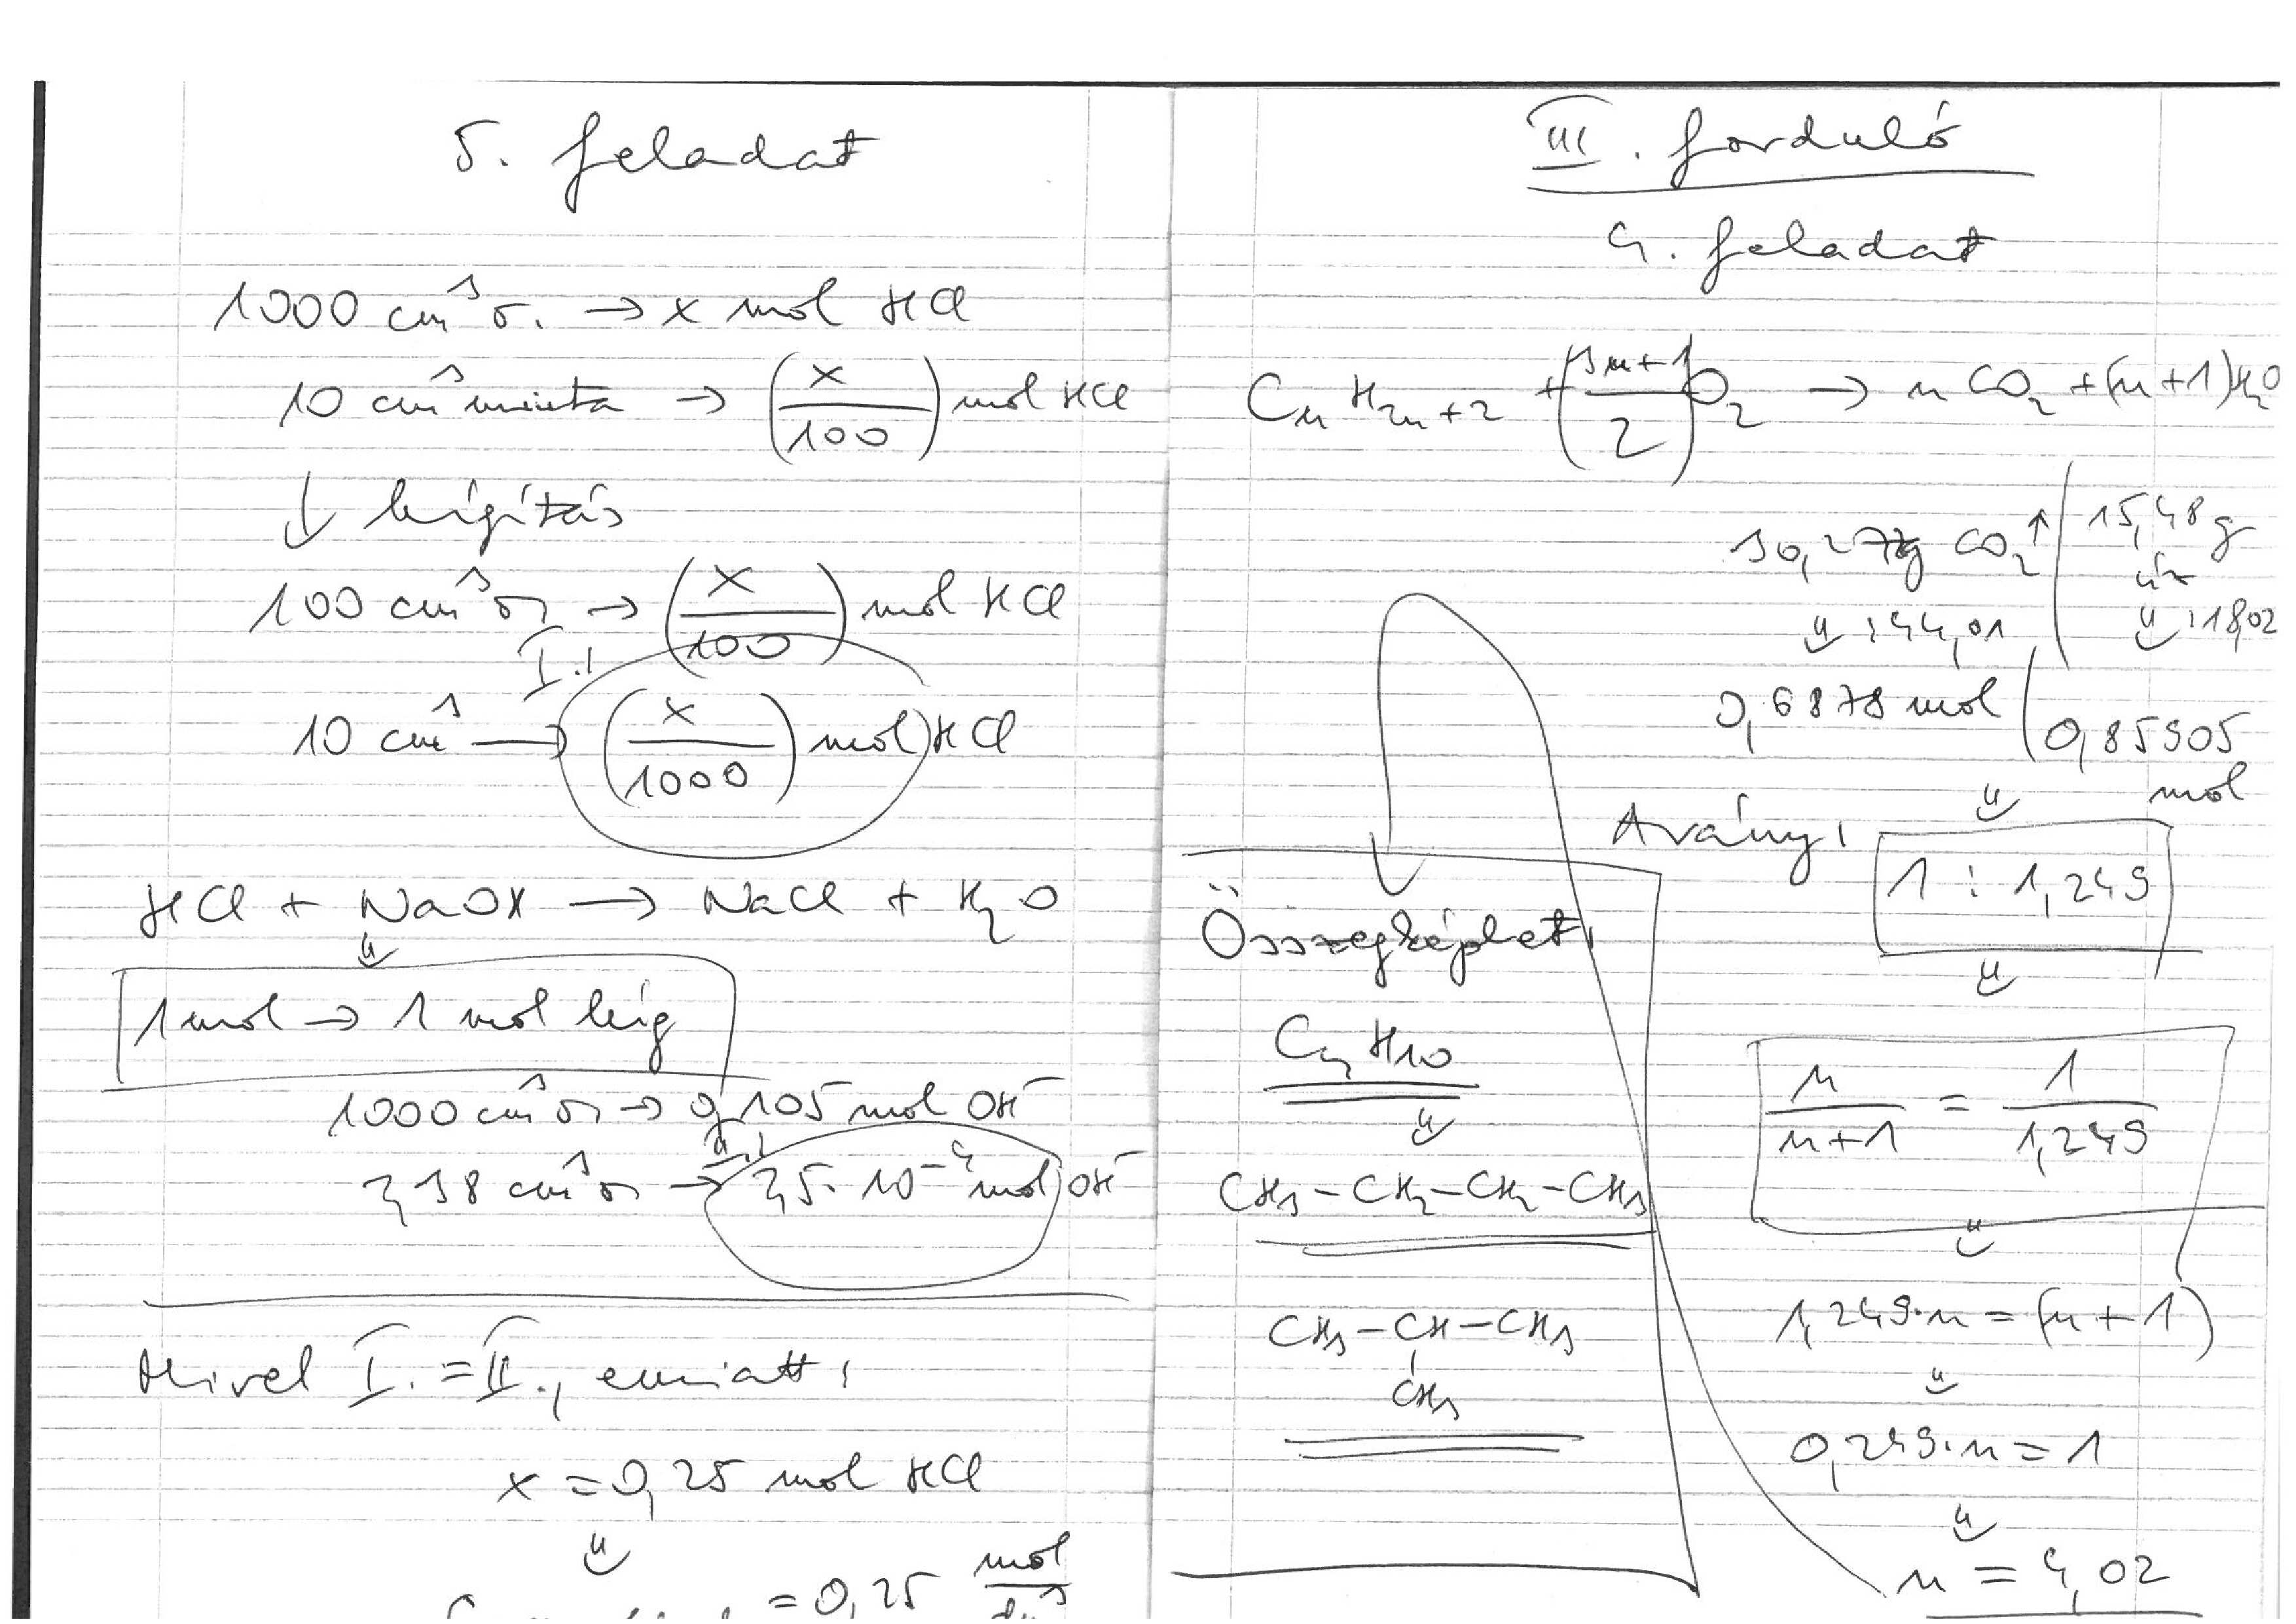 5. feladat
1000 cm³ o. → x mol HCl
10 cm³ minta → (x/100) mol HCl
↓ hígítás
100 cm³ o. → (x/100) mol HCl
I.:
10 cm³ → (x/1000) mol HCl
HCl + NaOH → NaCl + H₂O
⇓
1 mol → 1 mol lúg
1000 cm³ o. → 0,105 mol OH⁻
II.:
2,38 cm³ o. → 2,5·10⁻⁴ mol OH⁻
Mivel I. = II., emiatt:
x = 0,25 mol HCl
⇓
= 0,25 mol/dm³
III. forduló
4. feladat
CₙH₂ₙ₊₂ + (3n+1/2)O₂ → n CO₂ + (n+1)H₂O
30,27g CO₂↑ | 15,48 g
víz
⇓ :44,01 | ⇓ :18,02
0,6878 mol | 0,85905
mol
⇓
Arány:
1 : 1,249
⇓
n/n+1 = 1/1,249
⇓
1,249·n = (n+1)
⇓
0,249·n = 1
⇓
n = 4,02
Összegképlet:
C₄H₁₀
⇓
CH₃–CH₂–CH₂–CH₃
CH₃–CH–CH₃
CH₃